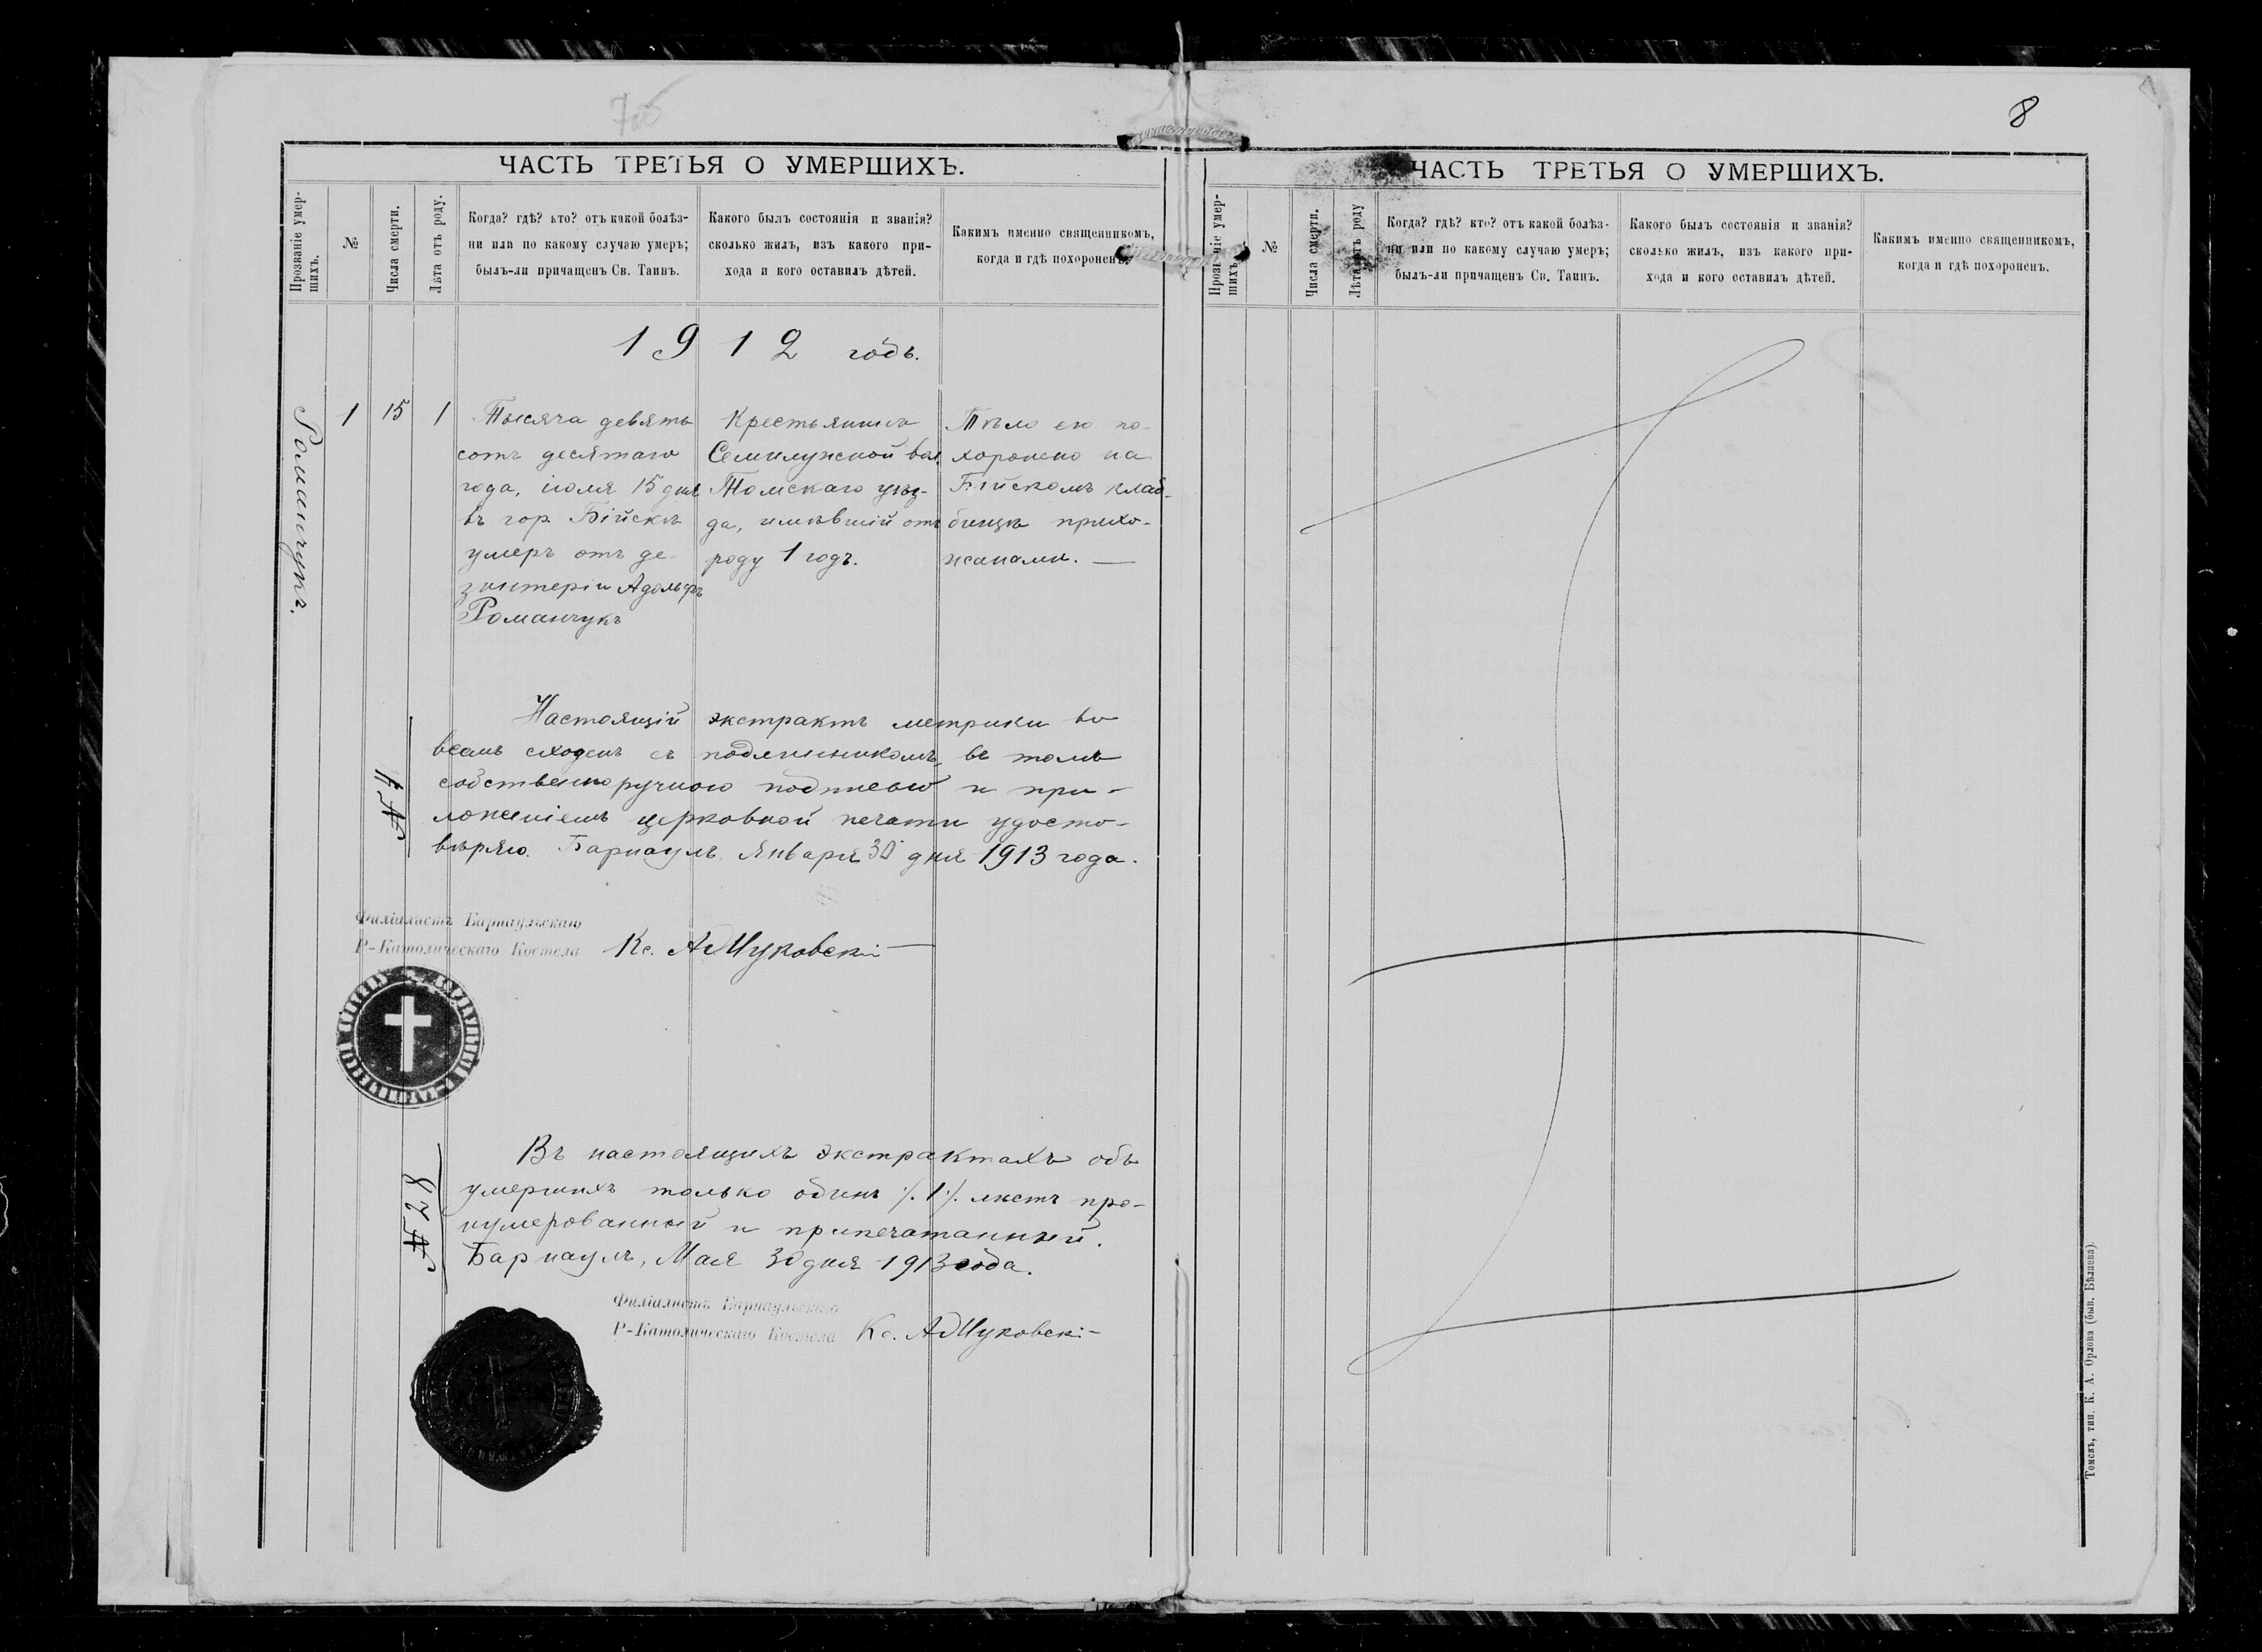 8
ЧАСТЬ ТРЕТЬЯ О УМЕРШИХЪ.
Прозваніе умер-
шихъ.
№
Числа смерти.
Лѣта отъ роду.
Когда? гдѣ? кто? отъ какой болѣз-
ни или по какому случаю умеръ;
былъ-ли причащенъ Св. Таинъ.
Какого былъ состоянія и званія?
сколько жилъ, изъ какого при-
хода и кого оставилъ дѣтей.
Какимъ именно священникомъ,
когда и гдѣ похороненъ.
1912 годъ.
Романчукъ.
1
15
1
Тысяча девять
сотъ десятаго
года, іюля 15 дня
въ гор. Бійскѣ
умеръ отъ де-
зинтеріи Адольфъ
Романчукъ
Крестьянинъ
Семилужской вол.
Томскаго уѣз-
да, имѣвшій отъ
роду 1 годъ.
Тѣло его по-
хоронено на
Бійскомъ клад-
бищѣ прихо-
жанами. —
Настоящій экстрактъ метрики во
всемъ сходенъ съ подлинникомъ, въ томъ
собственноручною подписью и при-
ложеніемъ церковной печати удосто-
вѣряю. Барнаулъ. Января 30 дня 1913 года.
Филіалистъ Барнаульскаго
Р-Католическаго Костела Кс. А Жуковскі
Въ настоящихъ экстрактахъ объ
умершихъ только одинъ /. 1 /. листъ про-
нумерованный и припечатанный.
Барнаулъ, Мая 30 дня 1913 года.
№ 28
Филіалистъ Барнаульскаго
Р-Католическаго Костела Кс. А Жуковскі
ЧАСТЬ ТРЕТЬЯ О УМЕРШИХЪ.
Прозваніе умер-
шихъ.
№
Числа смерти.
Лѣта отъ роду
Когда? гдѣ? кто? отъ какой болѣз-
ни или по какому случаю умеръ;
былъ-ли причащенъ Св. Таинъ.
Какого былъ состоянія и званія?
сколько жилъ, изъ какого при-
хода и кого оставилъ дѣтей.
Какимъ именно священникомъ,
когда и гдѣ похороненъ.
Томскъ, тип. К. А. Орлова (быв. Бѣляева).